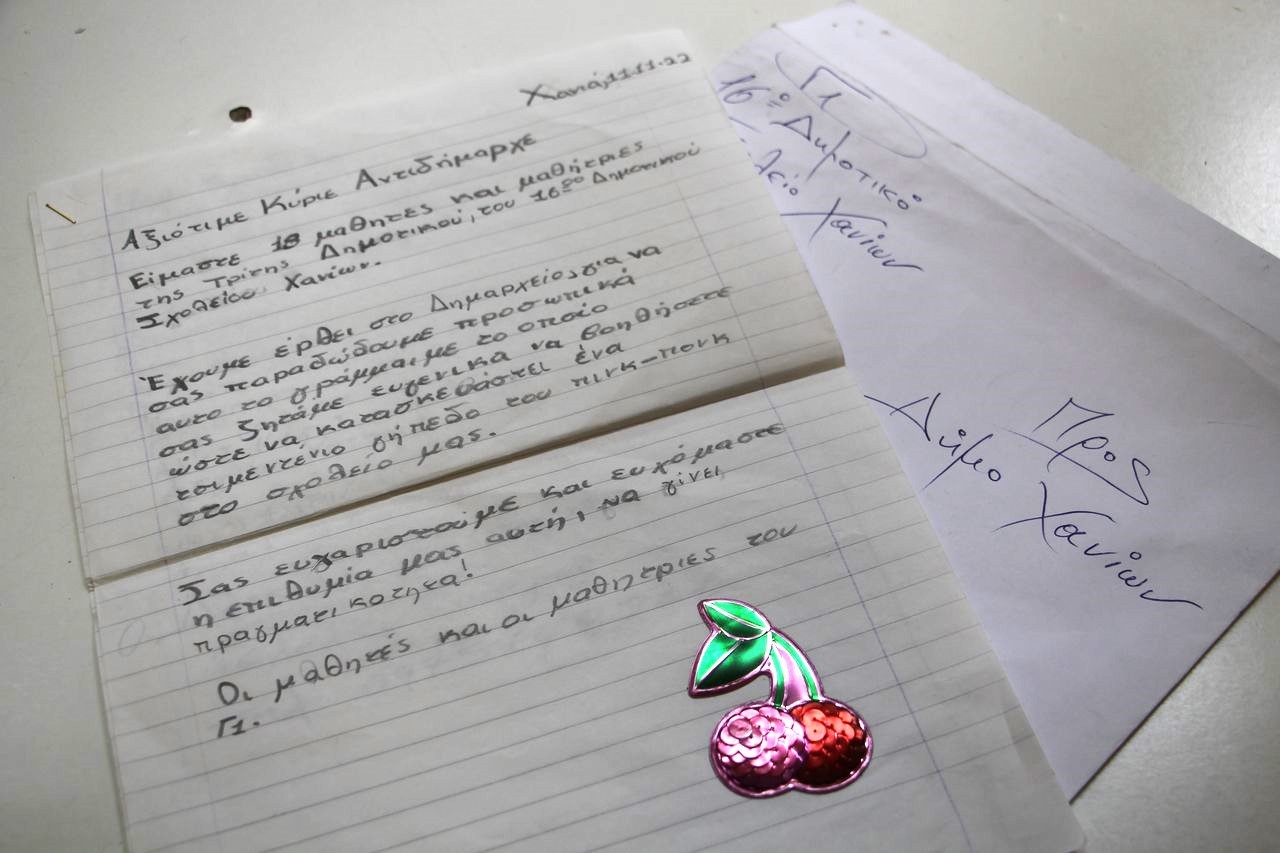 Χανιά, 11.11.22
Αξιότιμε Κύριε Αντιδήμαρχε
Είμαστε 18 μαθητες και μαθήτριες
της τρίτης Δημοτικού, του 16ου Δημοτικού
Σχολείου Χανίων.
Έχουμε έρθει στο Δημαρχείο, για να
σας παραδώδουμε προσωπικά
αυτο το γράμμα, με το οποίο
σας ζητάμε ευγενικα να βοηθήσετε
ώστε να κατασκευάστεί ένα
τσιμεντενιο γήπεδο του πινκ-πονκ
στο σχολείο μας.
Σας ευχαριστούμε και ευχόμαστε
η επιθυμία μας αυτή, να γίνει
πραγματικοτητα!
Οι μαθητές και οι μαθητριες του
Γ1.
Γ1
16ο Δημοτικό
Χανίων
Προς
Δήμο Χανίων